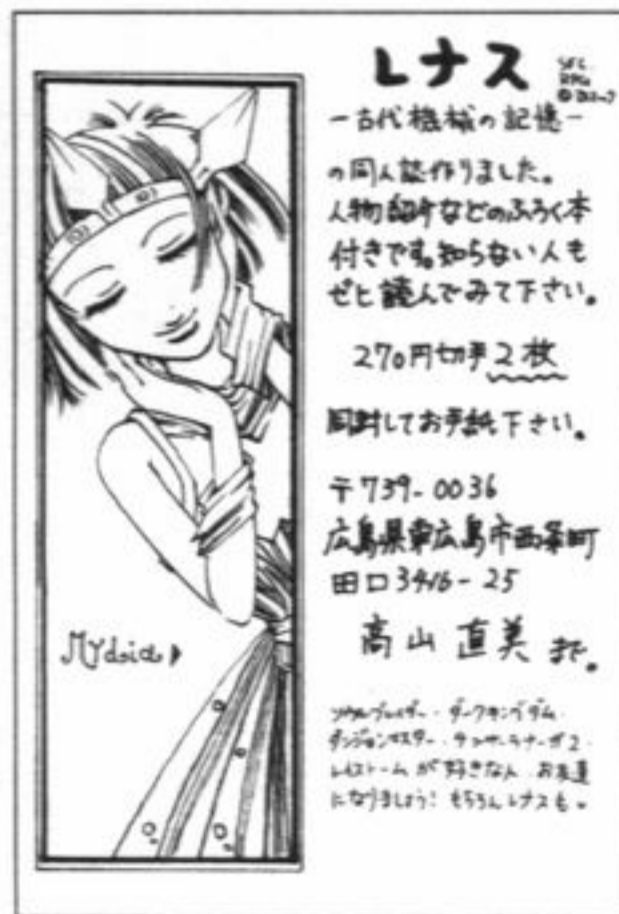 レナス
SFC
RPG
ー古代機械の記憶ー
の同人誌作りました。
人物紹介などのふろく本
付きです。知らない人も
ぜヒ読んでみて下さい。
270円切手2枚
同封してお手紙下さい。
〒739-0036
広島県東広島市西条町
田口3416-25
高山直美まで。
Mydia
ソウルブレイダー・ダークキングダム・
ダンジョンマスター・
レイストームが好きな人、お友達
になりましょう!もちろんレナスも。